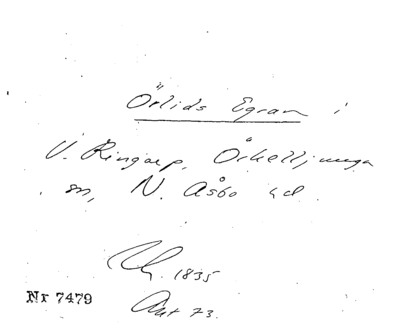 Örlids Egran i
V. Ringarp, Örkelljunga
sn, N. Åsbo hd.
1835
Nr 7479
Akt 73.